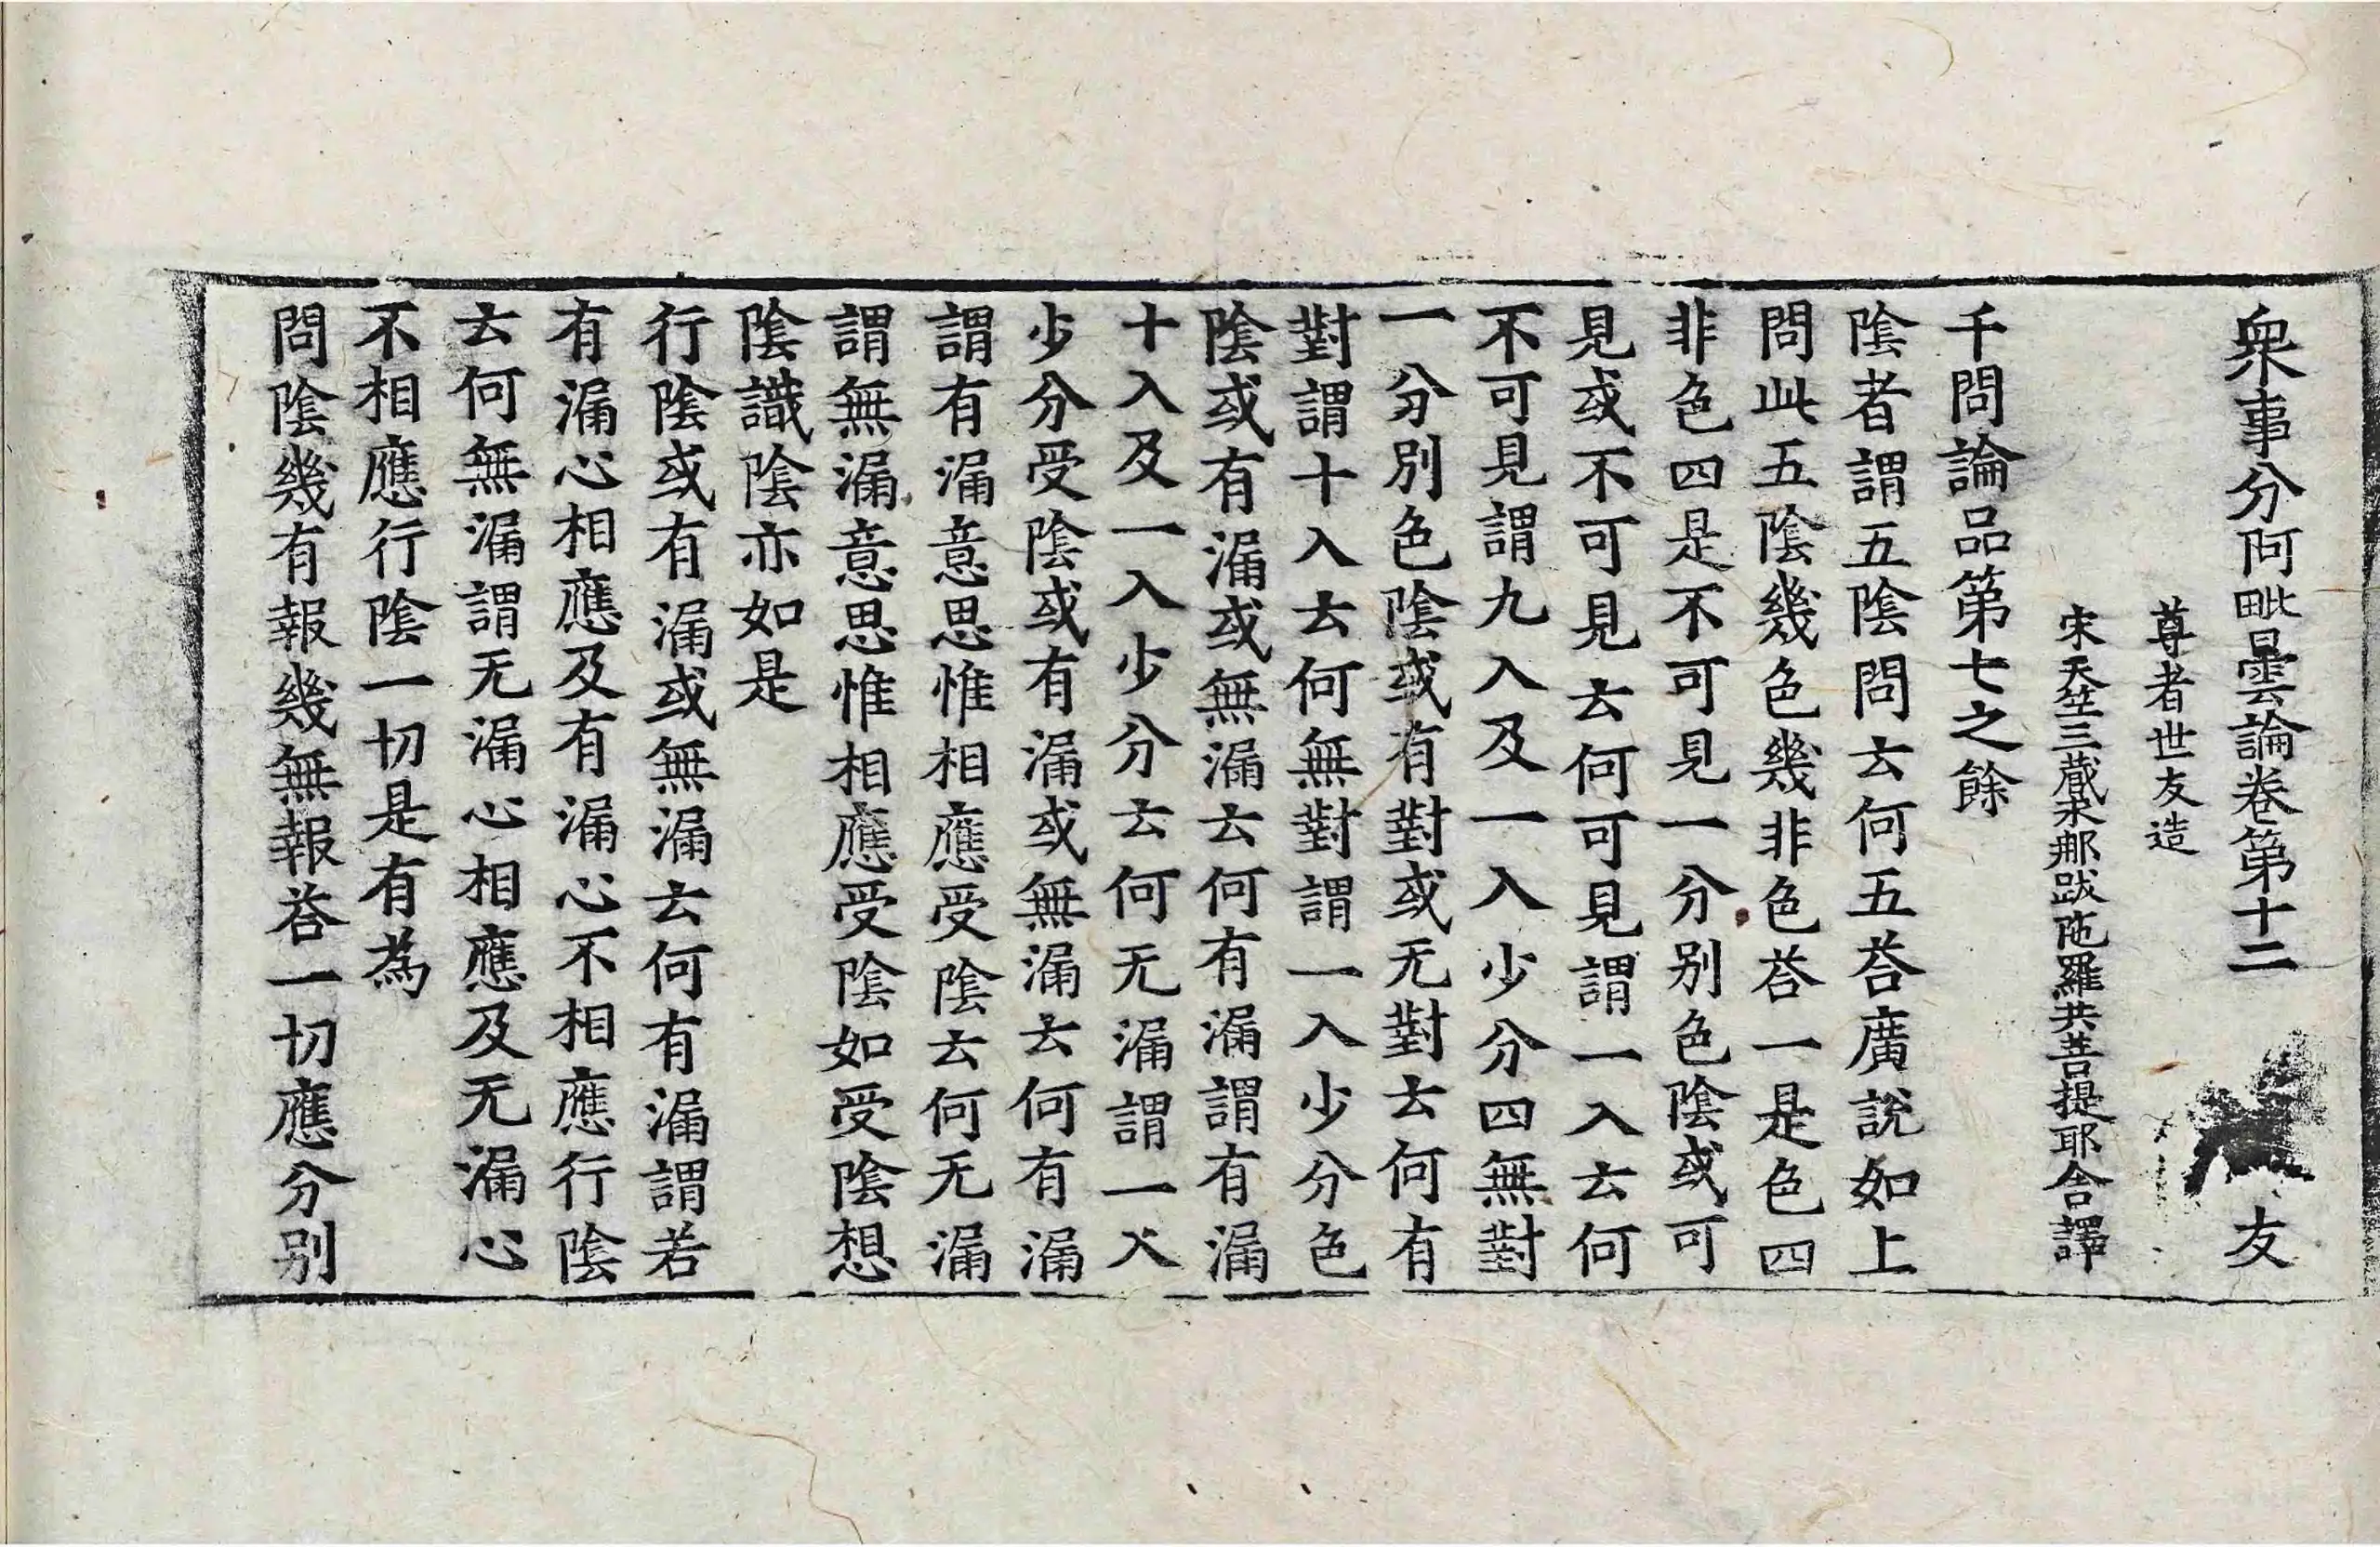 衆事分阿毗曇論卷第十二 友
尊者世友造
宋天竺三藏求那跋陁羅共菩提耶舍譯
千問論品第七之餘
陰者謂五陰問云何五荅廣說如上
問此五陰幾色幾非色荅一是色四
非色四是不可見一分別色陰或可
見或不可見云何可見謂一入云何
不可見謂九入及一入少分四無對
一分別色陰或有對或无對云何有
對謂十入云何無對謂一入少分色
陰或有漏或無漏云何有漏謂有漏
十入及一入少分云何无漏謂一入
少分受陰或有漏或無漏云何有漏
謂有漏意思惟相應受陰云何无漏
謂無漏意思惟相應受陰如受陰想
陰識陰亦如是
行陰或有漏或無漏云何有漏謂若
有漏心相應及有漏心不相應行陰
云何無漏謂无漏心相應及无漏心
不相應行陰一切是有為
問陰幾有報幾無報荅一切應分別